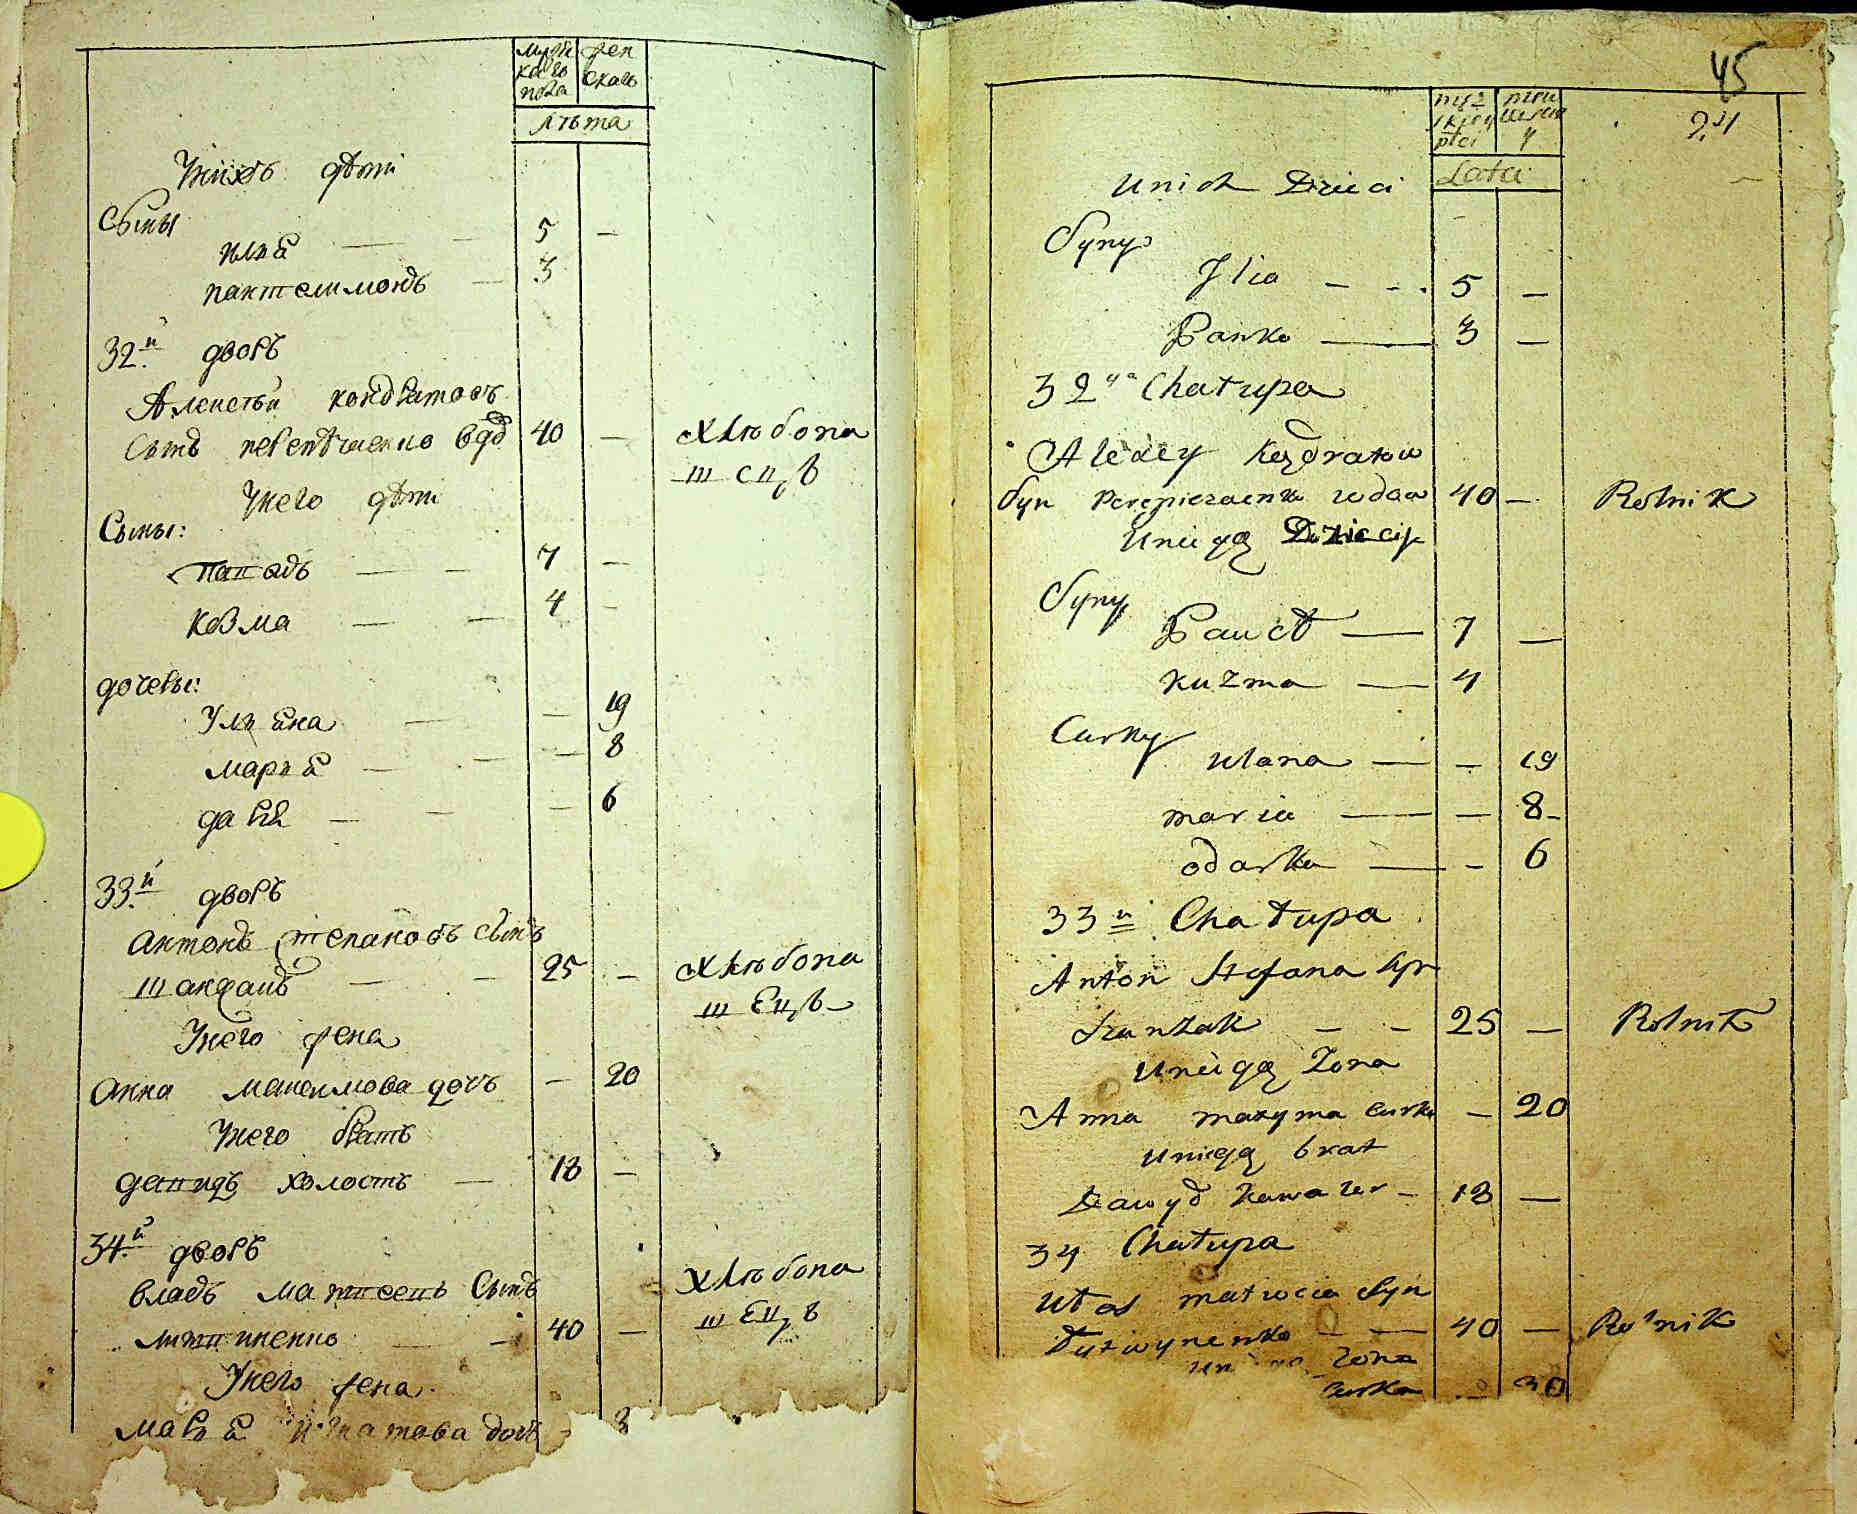 мужескаго пола
женскаго
лѣта
Унихъ дѣти
Сыны
илъя 5 —
пантелимонъ — 3
32й дворъ
Алексѣй кондратовъ
сынъ перепѣченко вдов 40 — хлѣбопа
шецъ
Унего дѣти
Сыны:
пападъ — — 7 —
козма — — 4 —
дочеры:
Улъяна — — 19
маръя — — — 8
даря — — — 6
33й дворъ
антонъ степановъ сынъ
шакжанъ — — 25 — хлѣбопа
шецъ
Унего жена
анна максимова дочъ — 20
Унего братъ
давидъ холостъ — 18 —
34й дворъ
власъ матвеевъ сынъ хлѣбопа
литвиненко — 40 — шецъ
Унего жена
маръя игнатова дочъ 3
45
męzkiey płci
Lata
Unich Dzieci
Syny
Ilia — — 5 —
Panko — 3 —
32га Chałupa
Alexey Kądratow
Syn Perepieczaenko wdow 40 — Rolnik
Uniego Dzieci
Syny
Paweł — 7 —
Kuzma — 4
Curky
Ulana — — 19
maria — — 8 —
odarka — — 6
33й Chałupa
Anton Stefana Syn
Szanżak — — 25 — Rolnik
Uniego Zona
Anna maxyma curka — 20
Uniego brat
Dawyd Kawaler — 18 —
34 Chałupa
Włas matwieia Syn
Łytwynenko — — 40 — Rolnik
Uniego Zona
curka — 30